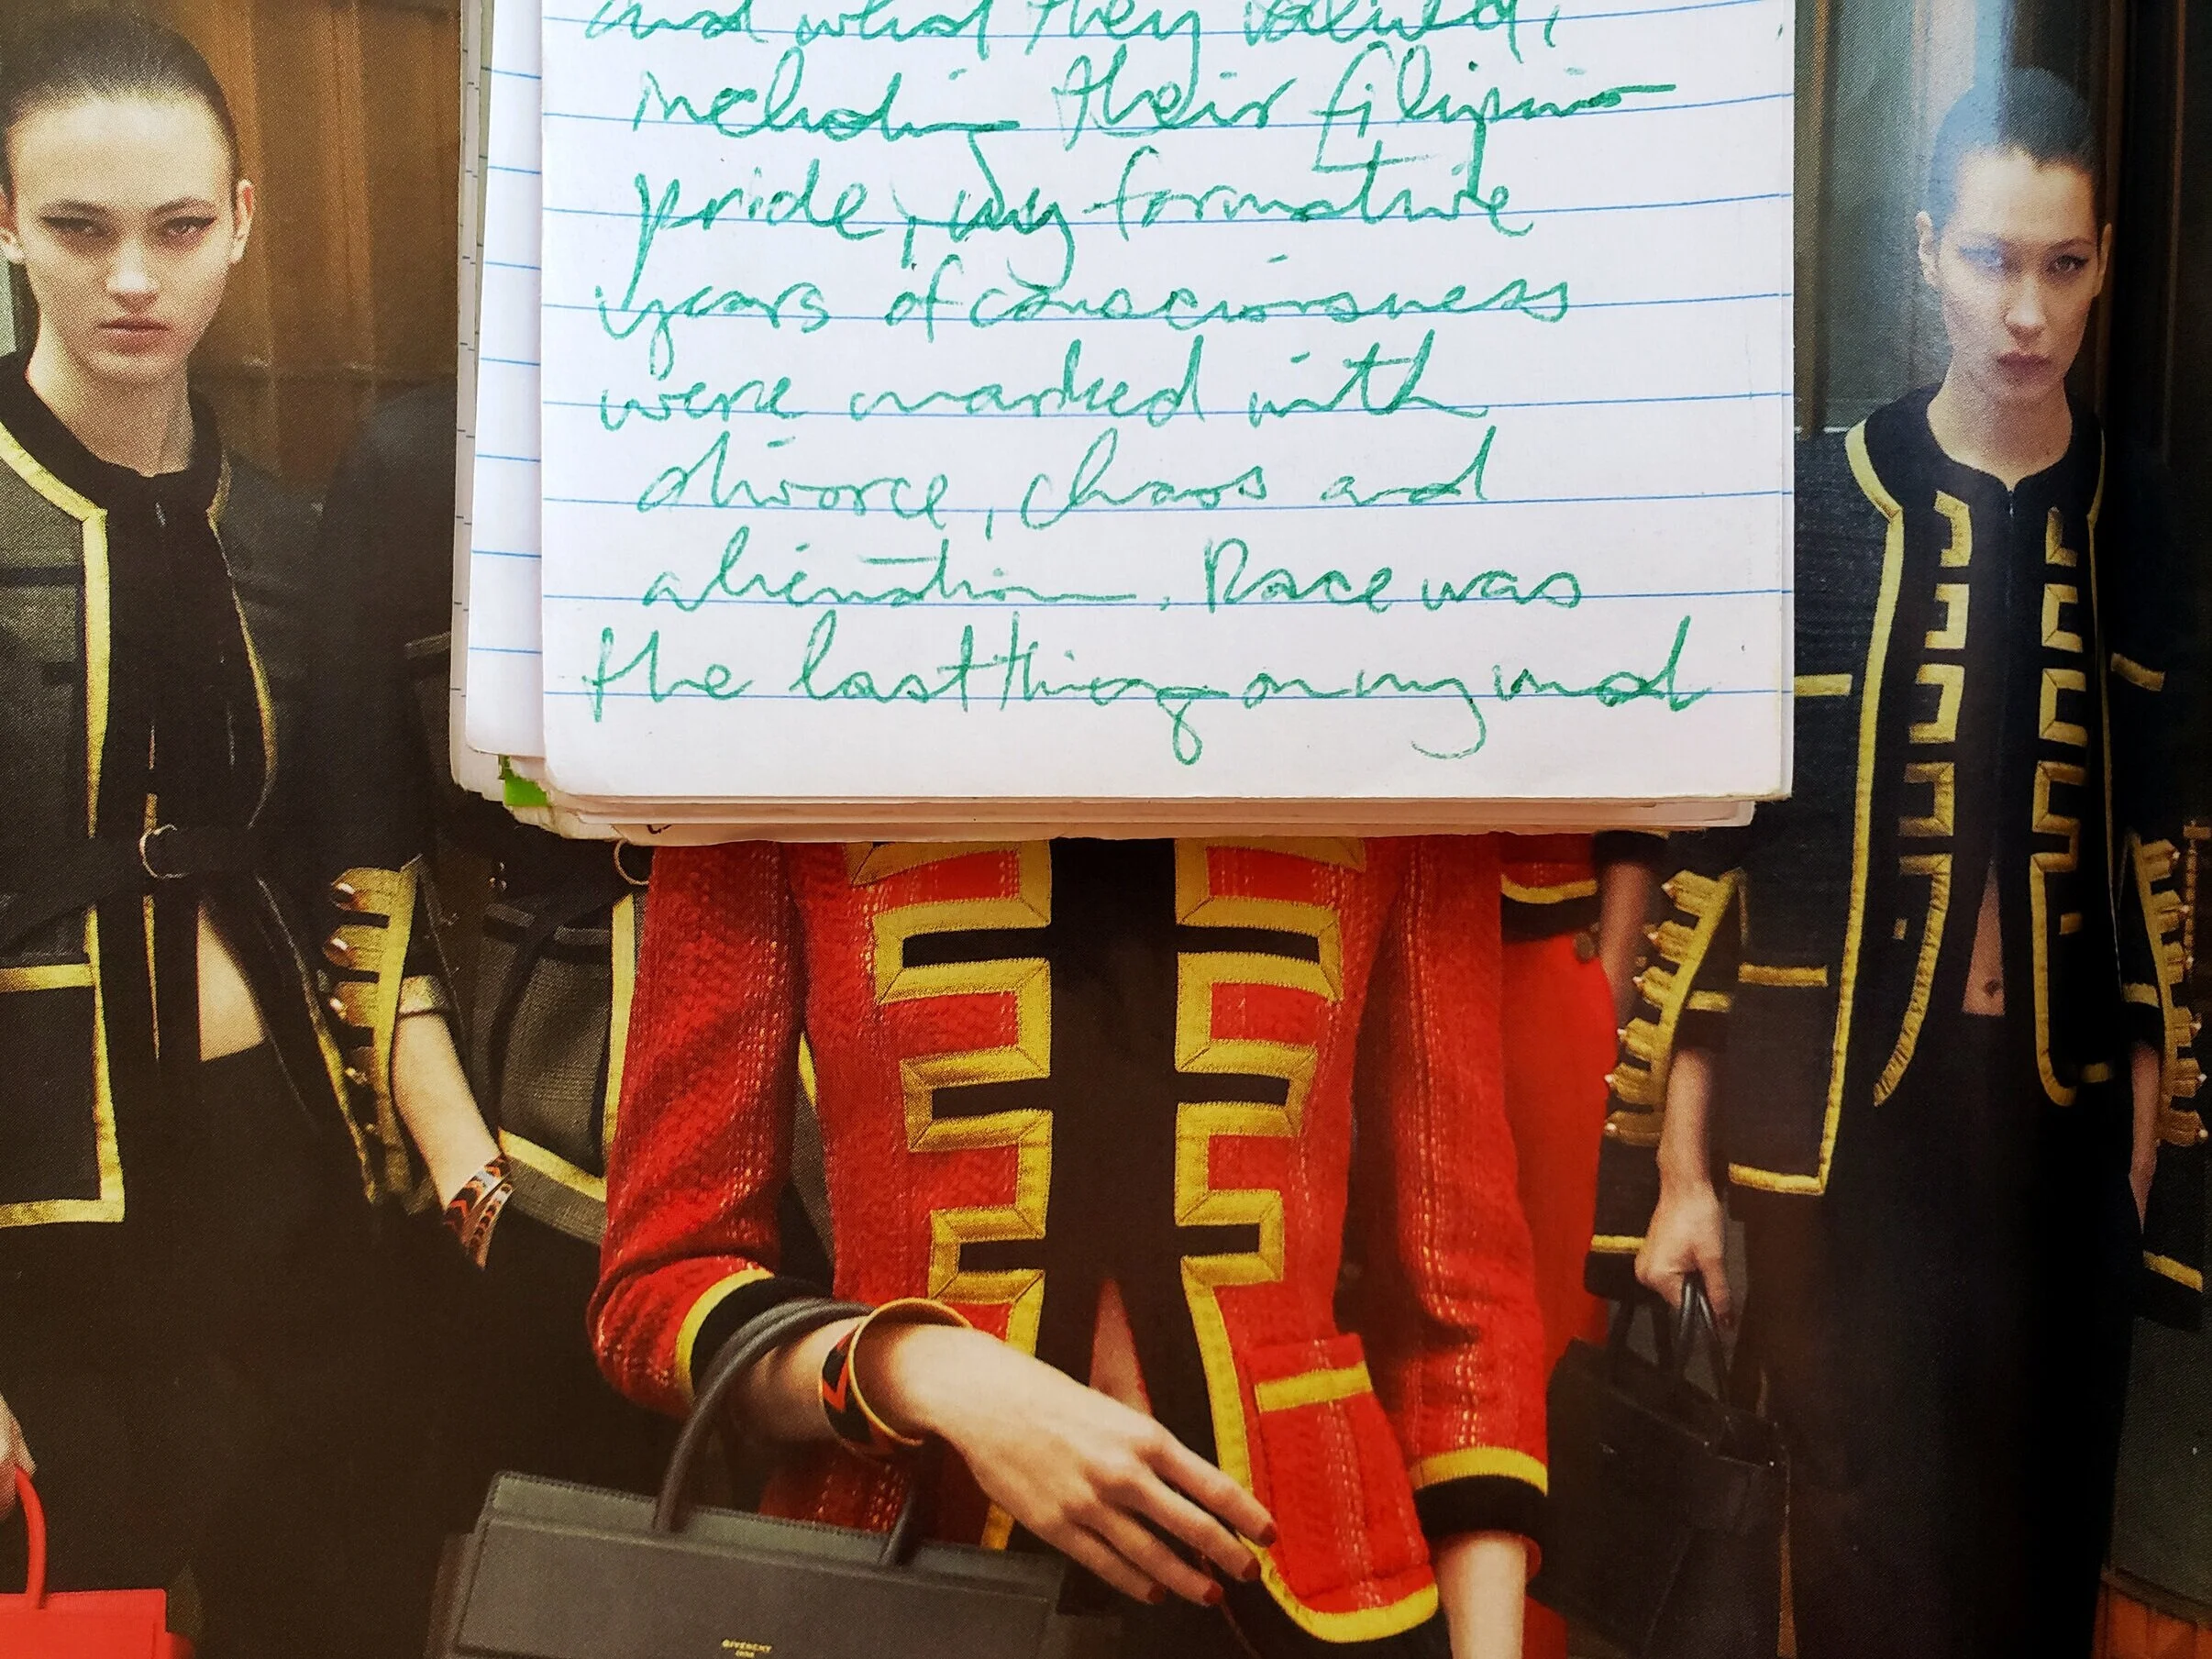 and what they valued,
including their filipino
pride, my formative
years of consciousness
were marked with
divorce, chaos and
alienation. Race was
the last thing on my mind
GIVENCHY